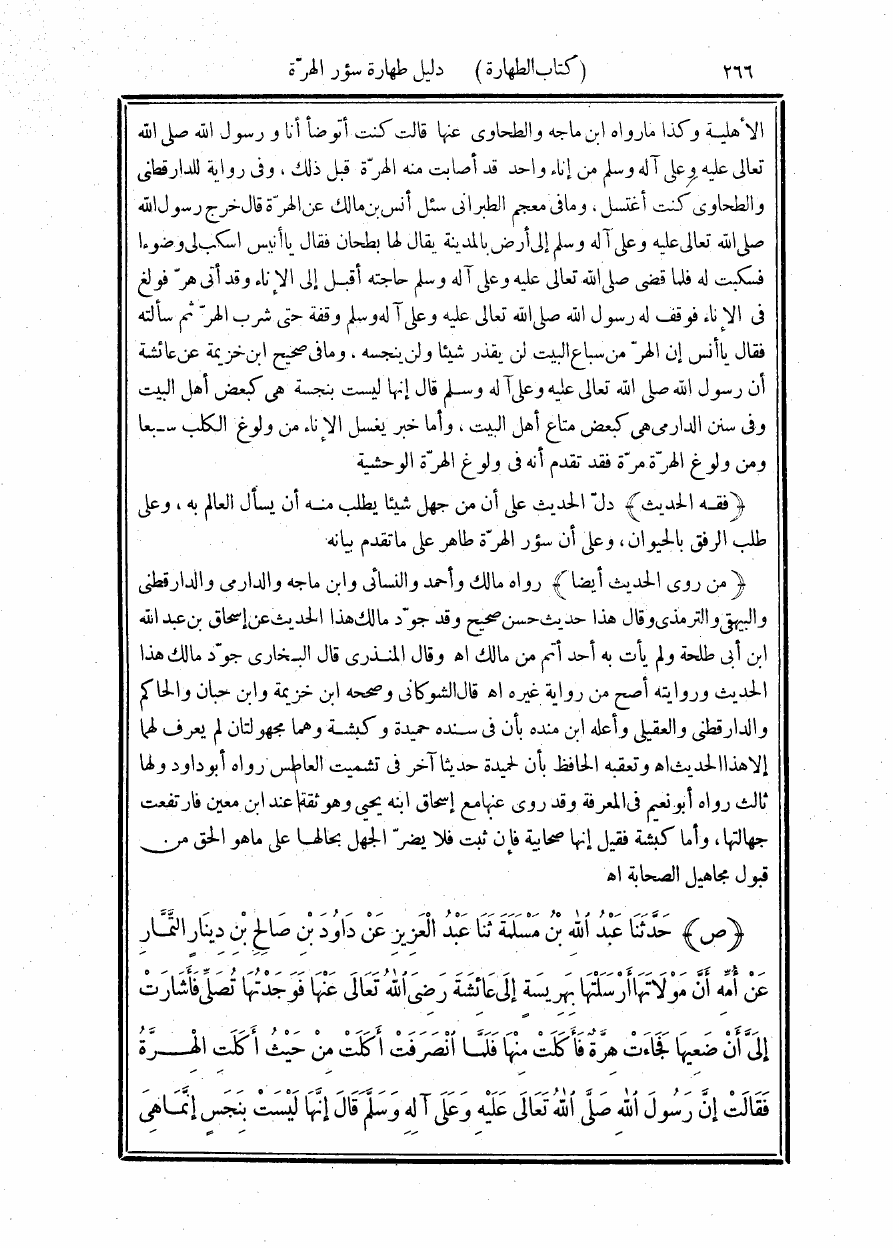 ٢٦٦ (كتاب الطهارة) دليل طهارة سؤر الهرّة
الأهلية وكذا مارواه ابن ماجه والطحاوى عنها قالت كنت أتوضأ أنا و رسول الله صلى الله
تعالى عليه وعلى آله وسلم من إناء واحد قد أصابت منه الهرّة قبل ذلك ، وفى رواية للدارقطنى
والطحاوى كنت أغتسل ، ومافى معجم الطبرانى سئل أنس بن مالك عن الهرّة قال خرج رسول الله
صلى الله تعالى عليه وعلى آله وسلم إلى أرض بالمدينة يقال لها بطحان فقال ياأنيس اسكب لى وضوءا
فسكبت له فلما قضى صلى الله تعالى عليه وعلى آله وسلم حاجته أقبل إلى الإناء وقد أتى هرّ فولغ
فى الإناء فوقف له رسول الله صلى الله تعالى عليه وعلى آله وسلم وقفة حتى شرب الهرّ ثم سألته
فقال ياأنس إن الهرّ من سباع البيت لن يقذر شيئا ولن ينجسه ، ومافى صحيح ابن خزيمة عن عائشة
أن رسول الله صلى الله تعالى عليه وعلى آله وسلم قال إنها ليست بنجسة هى كبعض أهل البيت
وفى سنن الدارمى هى كبعض متاع أهل البيت ، وأما خبر يغسل الإناء من ولوغ الكلب سبعا
ومن ولوغ الهرّة مرّة فقد تقدم أنه فى ولوغ الهرّة الوحشية
﴿فقه الحديث﴾ دلّ الحديث على أن من جهل شيئا يطلب منه أن يسأل العالم به ، وعلى
طلب الرفق بالحيوان ، وعلى أن سؤر الهرّة طاهر على ماتقدم بيانه
﴿من روى الحديث أيضا﴾ رواه مالك وأحمد والنسائى وابن ماجه والدارمى والدارقطنى
والبيهقى والترمذى وقال هذا حديث حسن صحيح وقد جوّد مالك هذا الحديث عن إسحاق بن عبد الله
ابن أبى طلحة ولم يأت به أحد أتم من مالك اه وقال المنذرى قال البخارى جوّد مالك هذا
الحديث وروايته أصح من رواية غيره اه قال الشوكانى وصححه ابن خزيمة وابن حبان والحاكم
والدارقطنى والعقيلى وأعله ابن منده بأن فى سنده حميدة وكبشة وهما مجهولتان لم يعرف لهما
إلا هذا الحديث اه وتعقبه الحافظ بأن لحميدة حديثا آخر فى تشميت العاطس رواه أبو داود ولها
ثالث رواه أبو نعيم فى المعرفة وقد روى عنها مع إسحاق ابنه يحيى وهو ثقة عند ابن معين فارتفعت
جهالتها ، وأما كبشة فقيل إنها صحابية فإن ثبت فلا يضرّ الجهل بحالها على ماهو الحق من
قبول مجاهيل الصحابة اه
﴿ص﴾ حَدَّثَنَا عَبْدُ اللهِ بْنُ مَسْلَمَةَ ثَنَا عَبْدُ الْعَزِيزِ عَنْ دَاوُدَ بْنِ صَالِحِ بْنِ دِينَارِ التَّمَّارِ
عَنْ أُمِّهِ أَنَّ مَوْلَاتَهَا أَرْسَلَتْهَا بِهَرِيسَةٍ إِلَى عَائِشَةَ رَضِىَ اللهُ تَعَالَى عَنْهَا فَوَجَدْتُهَا تُصَلِّى فَأَشَارَتْ
إِلَىَّ أَنْ ضَعِيهَا فَجَاءَتْ هِرَّةٌ فَأَكَلَتْ مِنْهَا فَلَمَّا انْصَرَفَتْ أَكَلَتْ مِنْ حَيْثُ أَكَلَتِ الْهِرَّةُ
فَقَالَتْ إِنَّ رَسُولَ اللهِ صَلَّى اللهُ تَعَالَى عَلَيْهِ وَعَلَى آلِهِ وَسَلَّمَ قَالَ إِنَّهَا لَيْسَتْ بِنَجَسٍ إِنَّمَا هِىَ